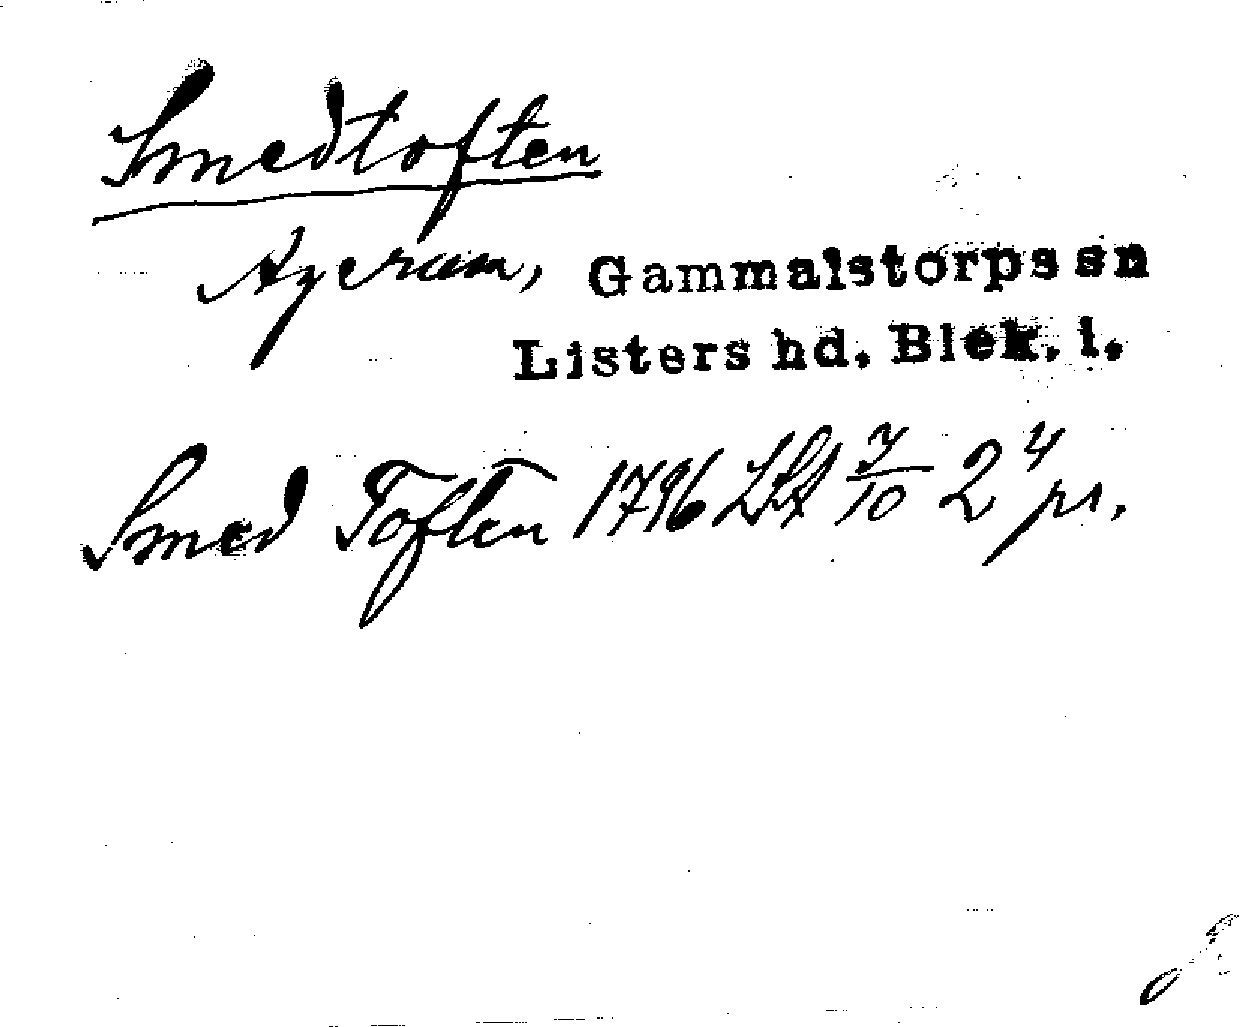 Smedtoften
Ageram, Gammalstorps sn
Listers hd. Blek. l.
Smed Toften 1796 LSA 7/10 2 4 ps.